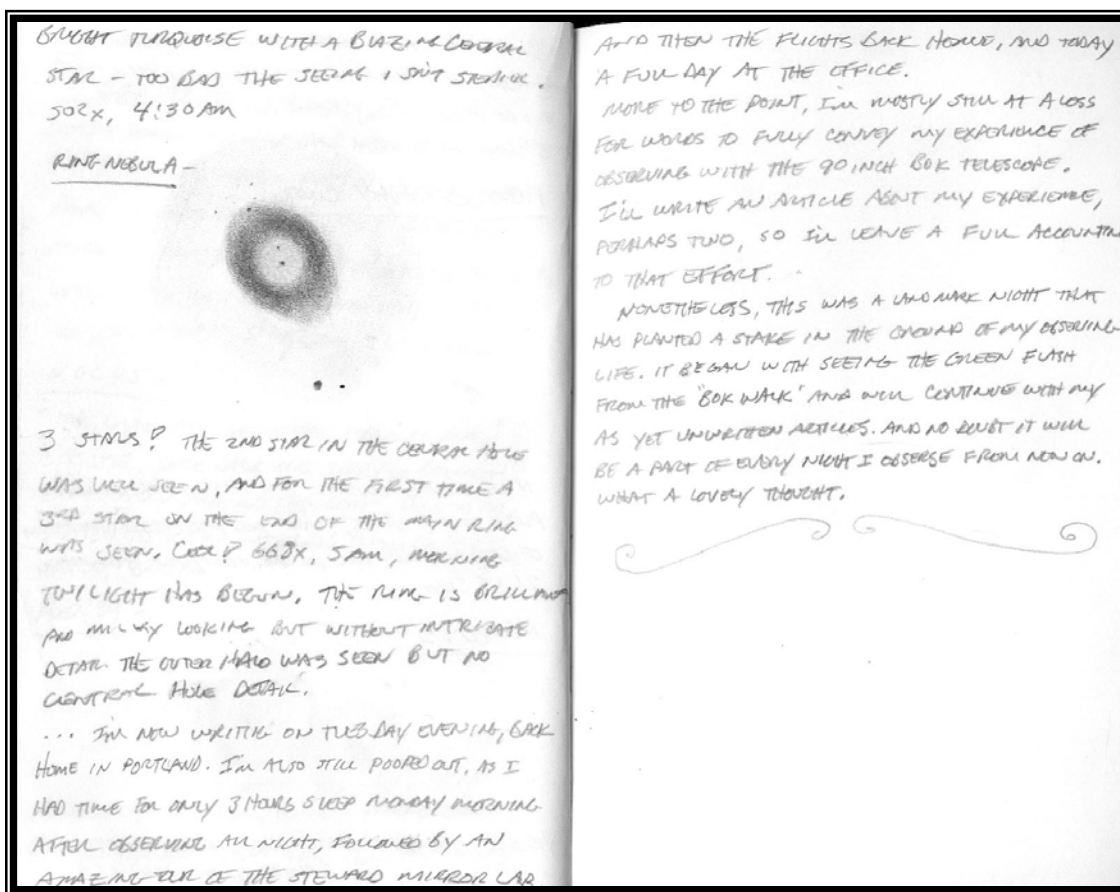 BRIGHT TURQUOISE WITH A BLAZING CENTRAL
STAR - TOO BAD THE SEEING ISN'T STEADIER.
502x, 4:30 AM
RING NEBULA -
3 STARS! THE 2ND STAR IN THE CENTRAL HOLE
WAS WELL SEEN, AND FOR THE FIRST TIME A
3RD STAR ON THE END OF THE MAIN RING
WAS SEEN. COOL! 668X, 5AM, MORNING
TWILIGHT HAS BEGUN. THE RING IS BRILLIANT
AND MILKY LOOKING BUT WITHOUT INTRICATE
DETAIL. THE OUTER HALO WAS SEEN BUT NO
CENTRAL HOLE DETAIL.
... I'M NOW WRITING ON TUESDAY EVENING, BACK
HOME IN PORTLAND. I'M ALSO STILL POOPED OUT, AS I
HAD TIME FOR ONLY 3 HOURS SLEEP MONDAY MORNING
AFTER OBSERVING ALL NIGHT, FOLLOWED BY AN
AMAZING TOUR OF THE STEWARD MIRROR LAB
AND THEN THE FLIGHTS BACK HOME, AND TODAY
A FULL DAY AT THE OFFICE.
MORE TO THE POINT, I'M MOSTLY STILL AT A LOSS
FOR WORDS TO FULLY CONVEY MY EXPERIENCE OF
OBSERVING WITH THE 90 INCH BOK TELESCOPE.
I'LL WRITE AN ARTICLE ABOUT MY EXPERIENCE,
PERHAPS TWO, SO I'LL LEAVE A FULL ACCOUNTIN
TO THAT EFFORT.
NONETHELESS, THIS WAS A LANDMARK NIGHT THAT
HAS PLANTED A STAKE IN THE GROUND OF MY OBSERVING
LIFE. IT BEGAN WITH SEEING THE GREEN FLASH
FROM THE "BOK WALK" AND WILL CONTINUE WITH MY
AS YET UNWRITTEN ARTICLES. AND NO DOUBT IT WILL
BE A PART OF EVERY NIGHT I OBSERSE FROM NOW ON.
WHAT A LOVELY THOUGHT.